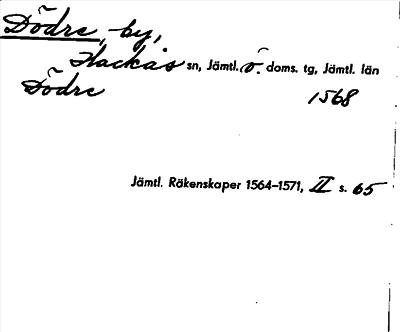 Dödre, by,
Hackås sn, Jämtl. ö. doms. tg, Jämtl. län
Dödre 1568
Jämtl. Räkenskaper 1564-1571, II s. 65